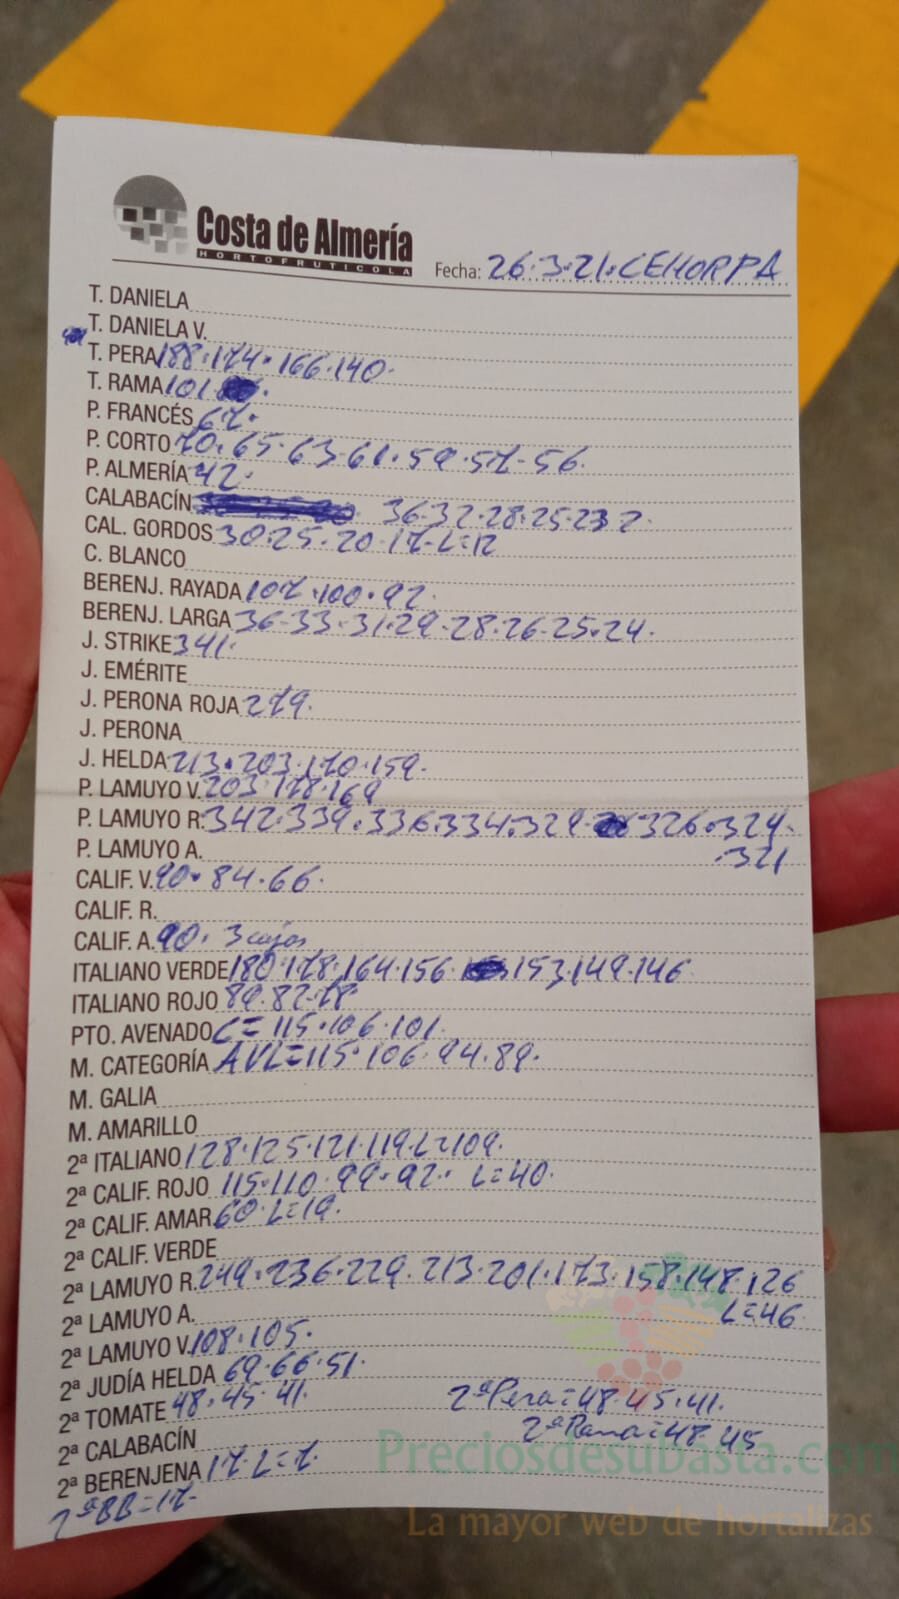 Costa de Almería
HORTOFRUTICOLA
Fecha: 26·3·21·CEHORPA
T. DANIELA
T. DANIELA V.
T. PERA 188·174·166·140·
T. RAMA 101
P. FRANCÉS 67·
P. CORTO 70·65·63·61·59·57·56·
P. ALMERÍA 42·
CALABACÍN 36·32·28·25·23
CAL. GORDOS 30·25·20·17·L=12
C. BLANCO
BERENJ. RAYADA 107·100·92·
BERENJ. LARGA 36·33·31·29·28·26·25·24·
J. STRIKE 341·
J. EMÉRITE
J. PERONA ROJA 279·
J. PERONA
J. HELDA 213·203·170·159·
P. LAMUYO V. 203·178·169
P. LAMUYO R. 342·339·336·334·329· 326·324·
P. LAMUYO A. ·321
CALIF. V. 90·84·66·
CALIF. R.
CALIF. A. 90· 3 cajas
ITALIANO VERDE 180·178·164·156· ·153·149·146
ITALIANO ROJO 89·82·78·
PTO. AVENADO C= 115·106·101·
M. CATEGORÍA AVL=115·106·94·89·
M. GALIA
M. AMARILLO
2ª ITALIANO 128·125·121·119·L=109·
2ª CALIF. ROJO 115·110·99·92· L=40·
2ª CALIF. AMAR. 60·L=19·
2ª CALIF. VERDE
2ª LAMUYO R. 249·236·229·213·201·173·158·148·126
2ª LAMUYO A. L=46
2ª LAMUYO V. 108·105·
2ª JUDÍA HELDA 69·66·51·
2ª TOMATE 48·45·41· 2ªPera=48·45·41·
2ª CALABACÍN 2ªRama=48·45
2ª BERENJENA 17·L=7·
2ªBB=17·
Preciosdesubasta.com
La mayor web de hortalizas